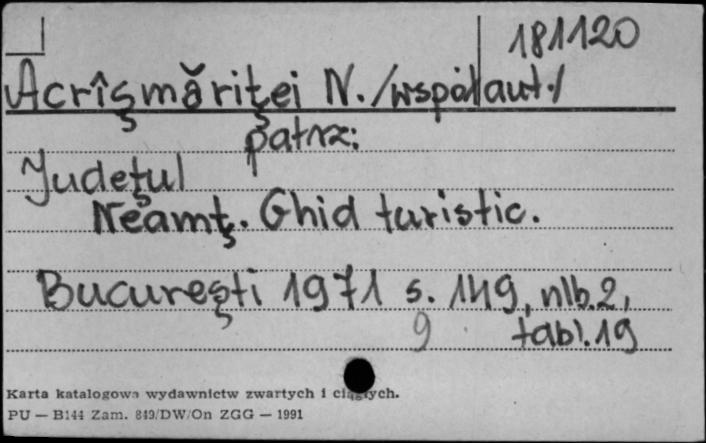 181120
Acrîşmăriţei N. /współaut./
patrz:
Judeţul
Neamţ. Ghid turistic.
Bucureşti 1971 s. 149, nlb. 2,
9 tabl. 19
Karta katalogowa wydawnictw zwartych i ciągłych.
PU — B144 Zam. 849/DW/On ZGG — 1991